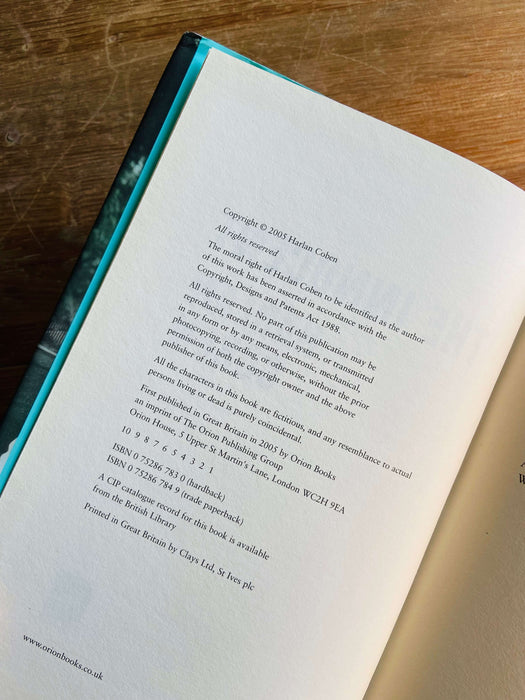 Copyright © 2005 Harlan Coben
All rights reserved
The moral right of Harlan Coben to be identified as the author
of this work has been asserted in accordance with the
Copyright, Designs and Patents Act 1988.
All rights reserved. No part of this publication may be
reproduced, stored in a retrieval system, or transmitted
in any form or by any means, electronic, mechanical,
photocopying, recording, or otherwise, without the prior
permission of both the copyright owner and the above
publisher of this book.
All the characters in this book are fictitious, and any resemblance to actual
persons living or dead is purely coincidental.
First published in Great Britain in 2005 by Orion Books
an imprint of The Orion Publishing Group
Orion House, 5 Upper St Martin's Lane, London WC2H 9EA
10 9 8 7 6 5 4 3 2 1
ISBN 0 75286 783 0 (hardback)
ISBN 0 75286 784 9 (trade paperback)
A CIP catalogue record for this book is available
from the British Library
Printed in Great Britain by Clays Ltd, St Ives plc
www.orionbooks.co.uk